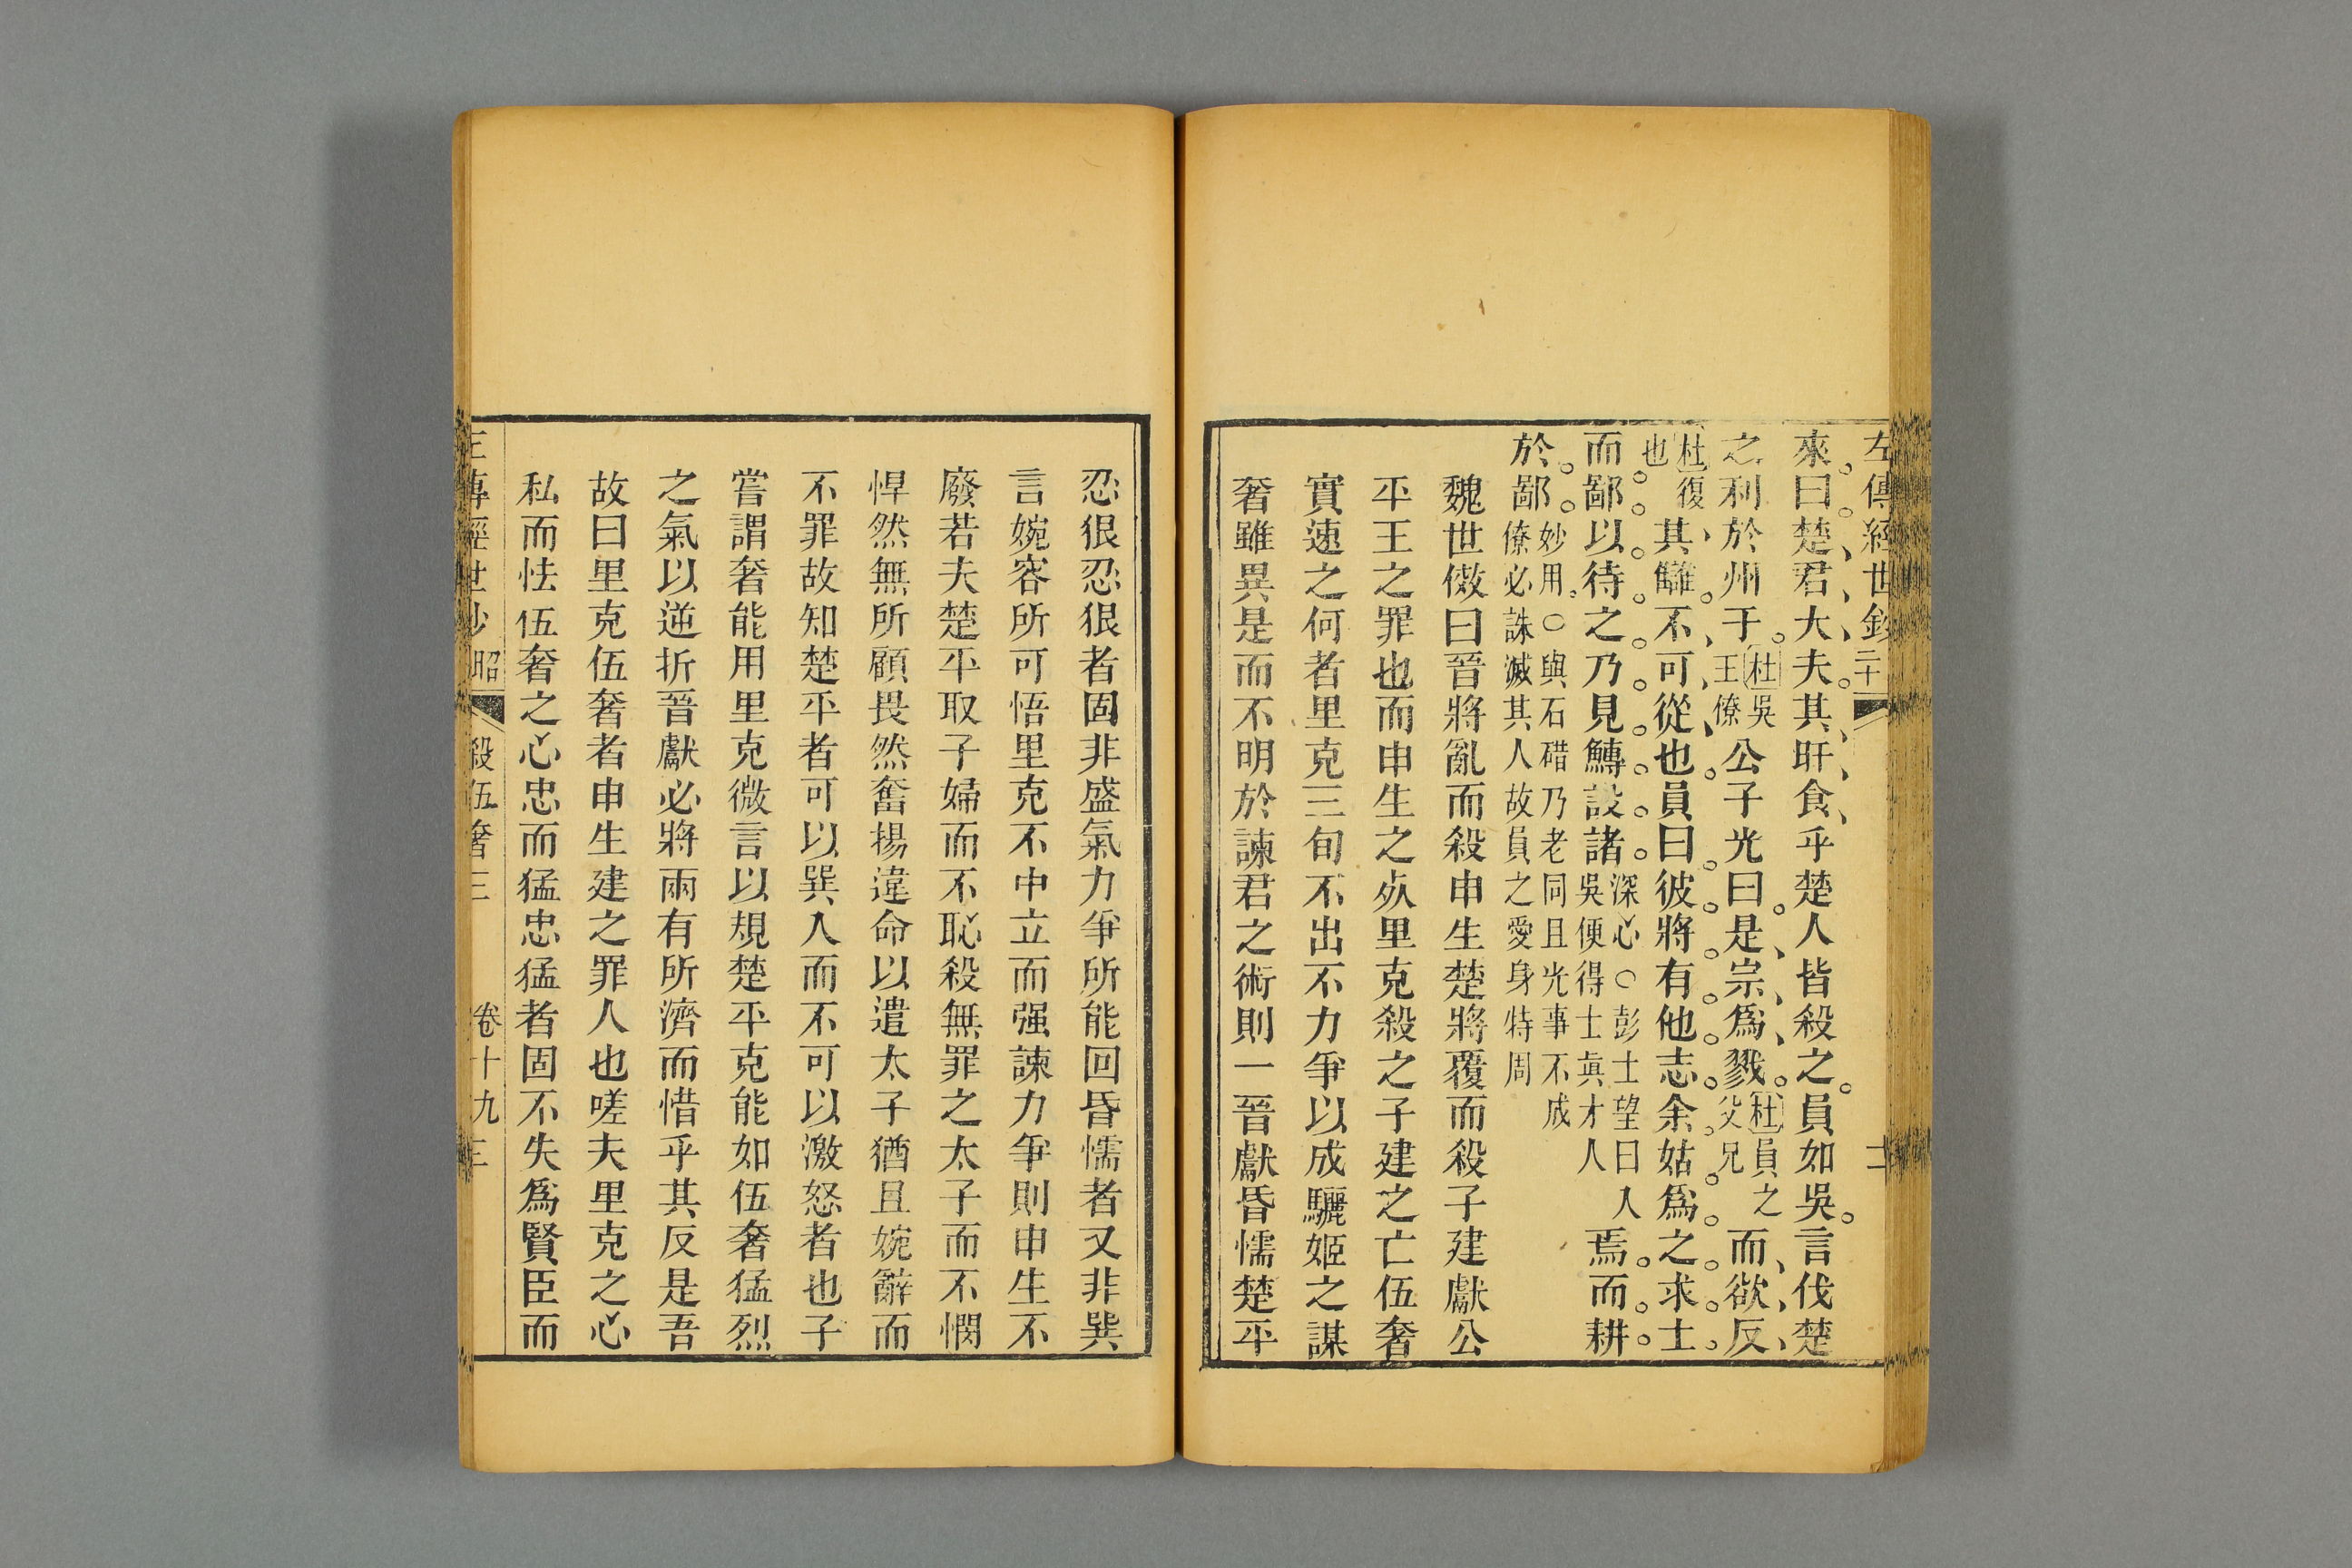 左傳經世鈔 二十 二
來曰楚君大夫其旰食乎楚人皆殺之員如吳言伐楚
之利於州于杜吳王僚公子光曰是宗爲戮杜員之父兄而欲反
其讎不可從也員曰彼將有他志余姑爲之求士
杜復也
而鄙以待之乃見鱄設諸深心○彭士望曰人吳便得士眞才人焉而耕
於鄙妙用○與石碏乃老同且光事不成僚必誅滅其人故員之愛身特周
魏世傚曰晉將亂而殺申生楚將覆而殺子建獻公
平王之罪也而申生之死里克殺之子建之亡伍奢
實速之何者里克三旬不出不力爭以成驪姬之謀
奢雖異是而不明於諫君之術則一晉獻昏懦楚平
忍狠忍狠者固非盛氣力爭所能回昏懦者又非巽
言婉容所可悟里克不中立而强諫力爭則申生不
廢若夫楚平取子婦而不恥殺無罪之太子而不憫
悍然無所顧畏然奮揚違命以遣太子猶且婉辭而
不罪故知楚平者可以巽人而不可以激怒者也子
嘗謂奢能用里克微言以規楚平克能如伍奢猛烈
之氣以逆折晉獻必將兩有所濟而惜乎其反是吾
故曰里克伍奢者申生建之罪人也嗟夫里克之心
私而怯伍奢之心忠而猛忠猛者固不失爲賢臣而
左傳經世鈔 昭 殺伍奢三 卷十九 三